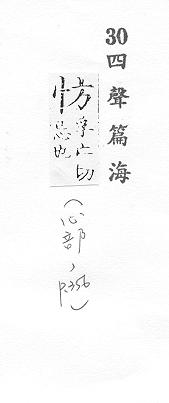 30四聲篇海
㤃孚亡切
忌也
(心部, p.356)